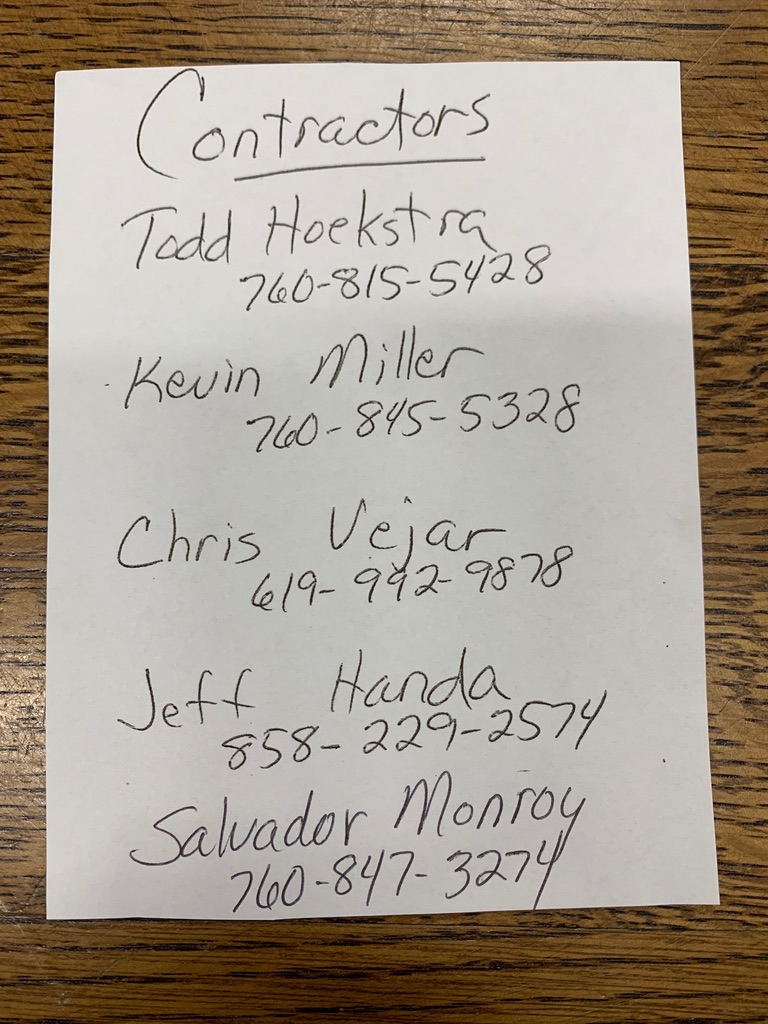 Contractors
Todd Hoekstra
760-815-5428
Kevin Miller
760-845-5328
Chris Vejar
619-992-9878
Jeff Handa
858-229-2574
Salvador Monroy
760-847-3274